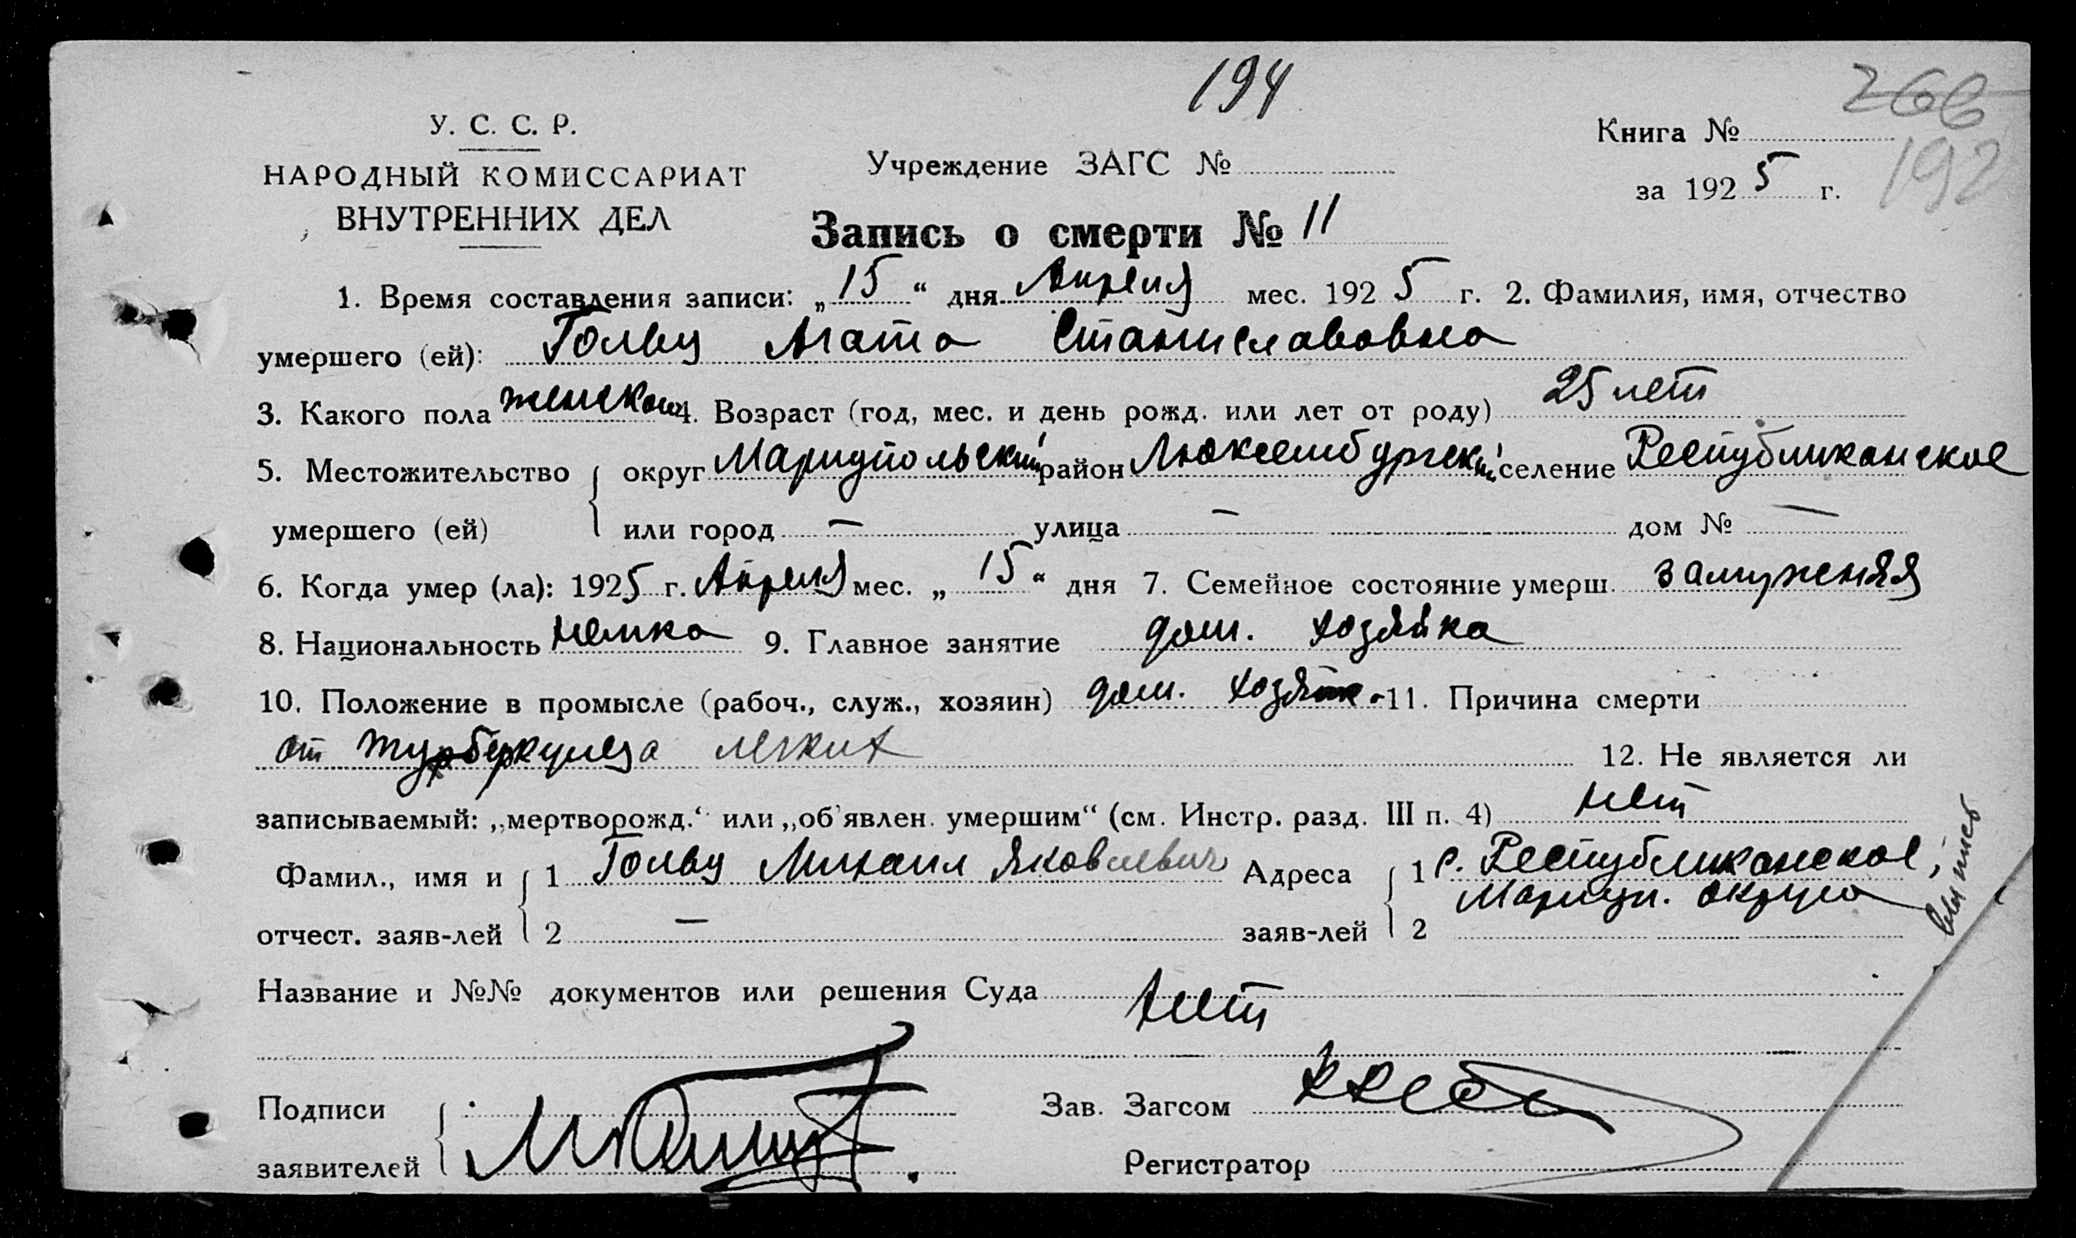 194
266
У. С. С. Р.
Книга №
192
НАРОДНЫЙ КОМИССАРИАТ
Учреждение ЗАГС №
за 1925 г.
ВНУТРЕННИХ ДЕЛ
Запись о смерти № 11
1. Время составления записи: „15“ дня Апреля мес. 1925 г. 2. Фамилия, имя, отчество
умершего (ей): Агата Станиславовна
3. Какого пола женского 4. Возраст (год, мес. и день рожд. или лет от роду) 25 лет
5. Местожительство { округ Мариупольский район Люксембургский селение Республиканское
умершего (ей) или город — улица — дом № —
6. Когда умер (ла): 1925 г. Апреля мес. „15“ дня 7. Семейное состояние умерш. замужняя
8. Национальность немка 9. Главное занятие дом. хозяйка
10. Положение в промысле (рабоч., служ., хозяин) дом. хозяйк. 11. Причина смерти
от туберкулеза легких 12. Не является ли
записываемый: „мертворожд.“ или „об'явлен. умершим“ (см. Инстр. разд. III п. 4) нет
Фамил., имя и { 1 Михаил Яковлевич Адреса { 1 с. Республиканское,
Мариуп. округа
отчест. заяв-лей 2 — заяв-лей 2
Название и №№ документов или решения Суда нет
Подписи { Зав. Загсом
заявителей Регистратор